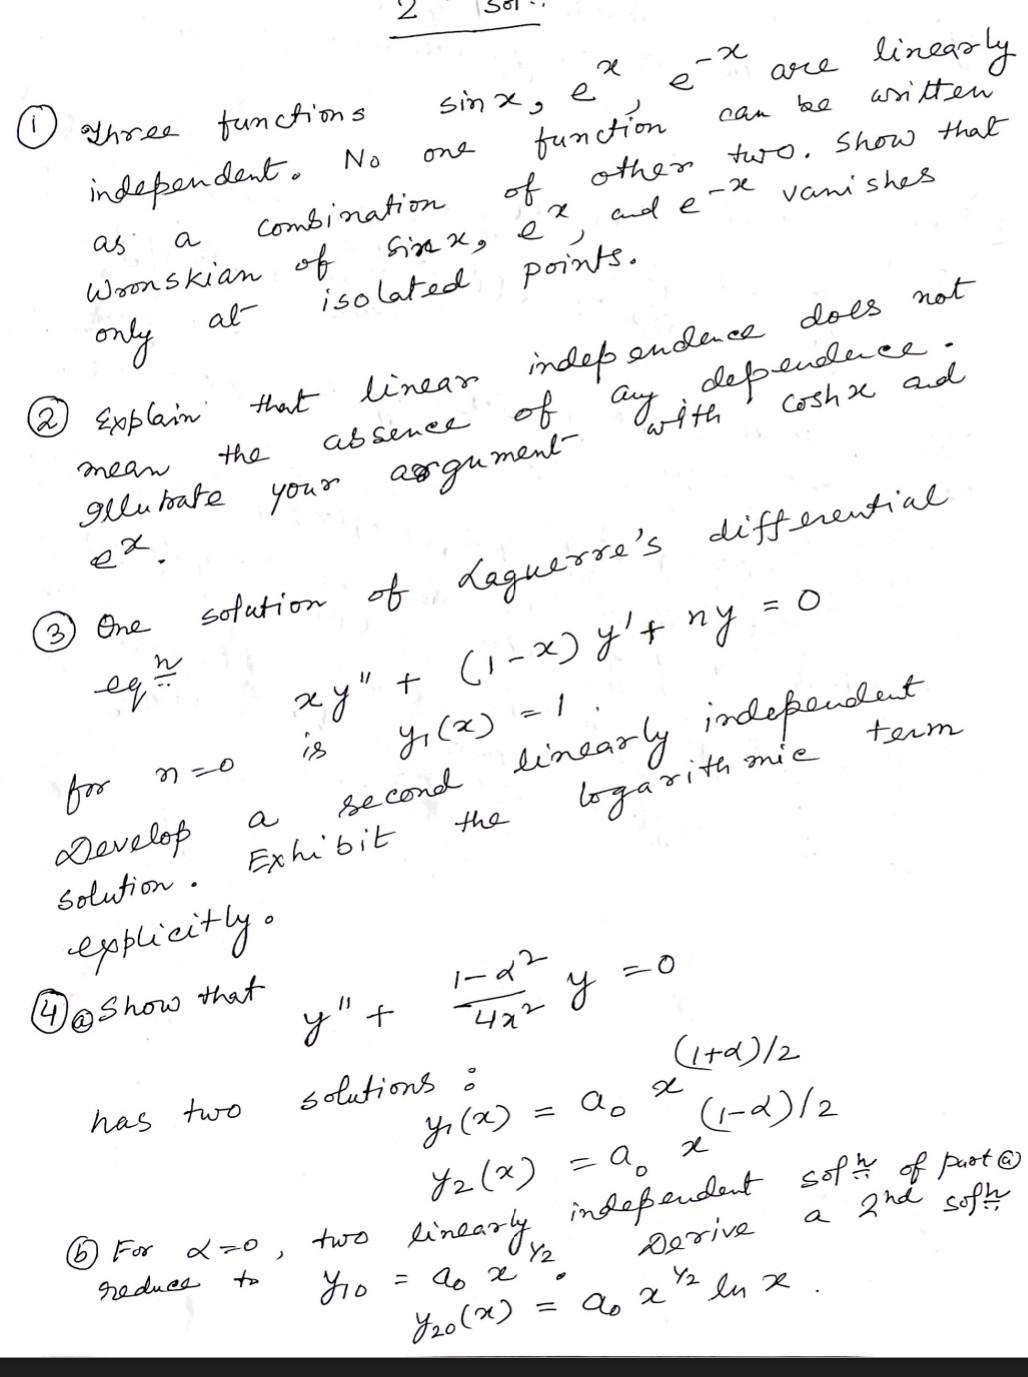 2 sol..
① Three functions sin x, eˣ, e⁻ˣ are linearly
independent. No one function can be written
as a combination of other two. Show that
Wronskian of sin x, eˣ, and e⁻ˣ vanishes
only at isolated points.
② Explain that linear independence does not
mean the absence of any dependence.
Illutrate your argument with cosh x and
eˣ.
③ One solution of Laguerre's differential
eqⁿ
xy" + (1-x) y' + ny = 0
for n=0 is y₁(x) = 1.
Develop a second linearly independent
solution. Exhibit the logarithmic term
explicitly.
④ ⓐ Show that y" + (1-α²)/(4x²) y = 0
has two solutions :
y₁(x) = a₀ x^(1+α)/2
y₂(x) = a₀ x^(1-α)/2
ⓑ For α=0, two linearly independent solⁿ of part ⓐ
reduce to y₁₀ = a₀ x^1/2. Derive a 2nd solⁿ
y₂₀(x) = a₀ x^1/2 ln x.